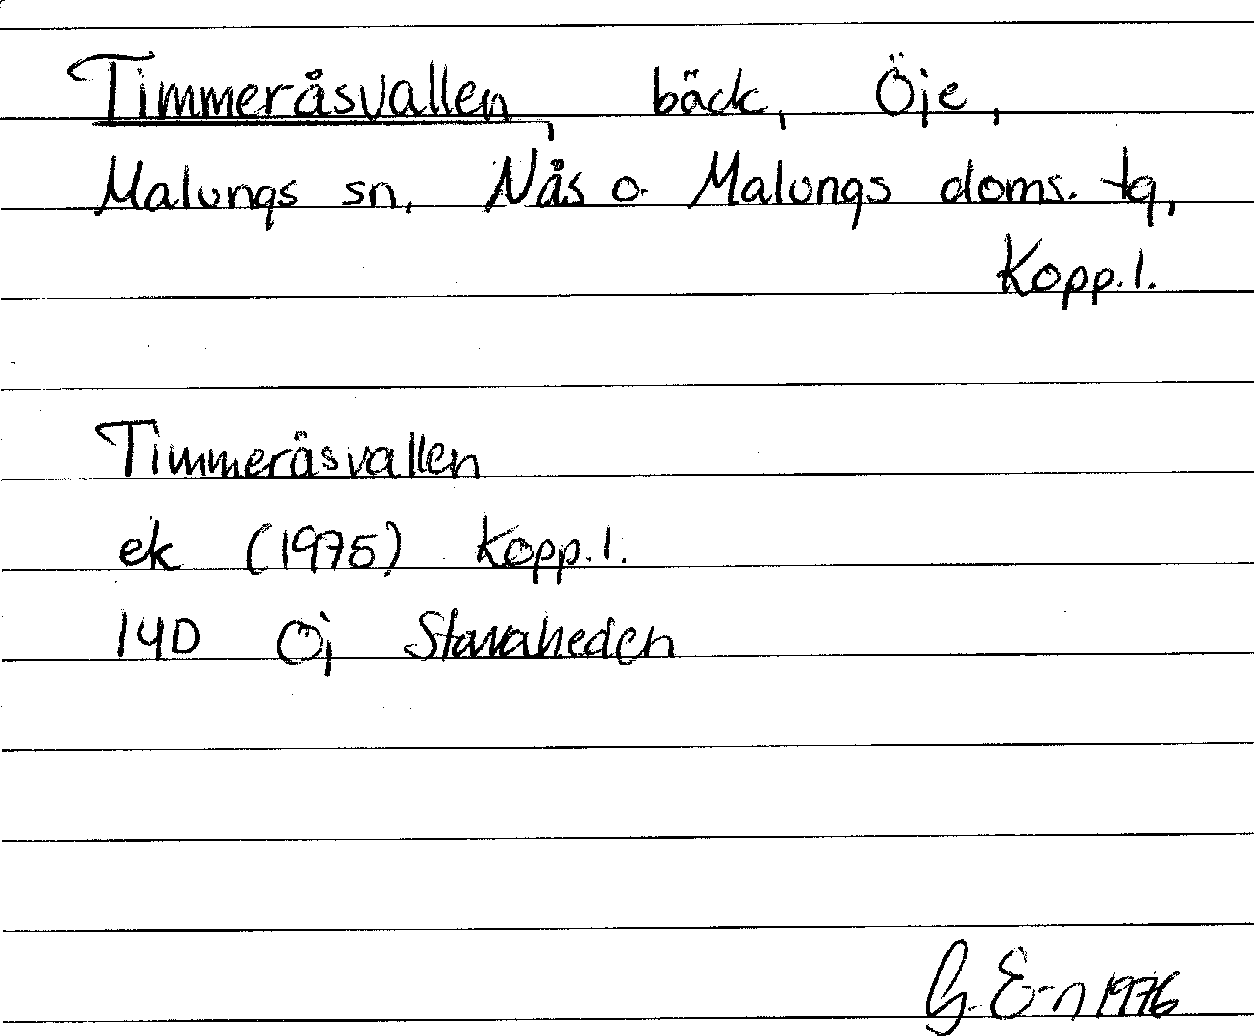 Timmeråsvallen, bäck, Öje,
Malungs sn, Nås o. Malungs doms. tg,
Kopp.l.
Timmeråsvallen
ek (1975) Kopp.l.
14D Öj Stavaheden
G. E-n 1976